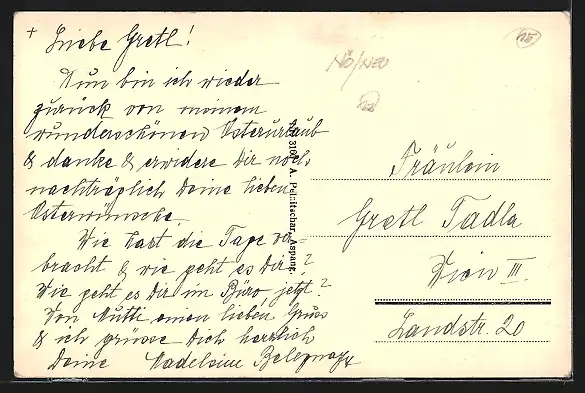 Liebe Gretl!
Nun bin ich wieder
zurück von meinem
wunderschönen Osterurlaub
& danke & erwidere Dir noch
nachträglich Deine lieben
Osterwünsche.
Wie hast die Tage ver-
bracht & wie geht es Dir?
Wie geht es Dir im Büro, jetzt?
Von Mutti einen lieben Gruss
& ich grüsse Dich herzlich
Deine
NÖ/NEU
A. Aspang.
Fräulein
Gretl Tadla
Wien III.
Landstr. 20